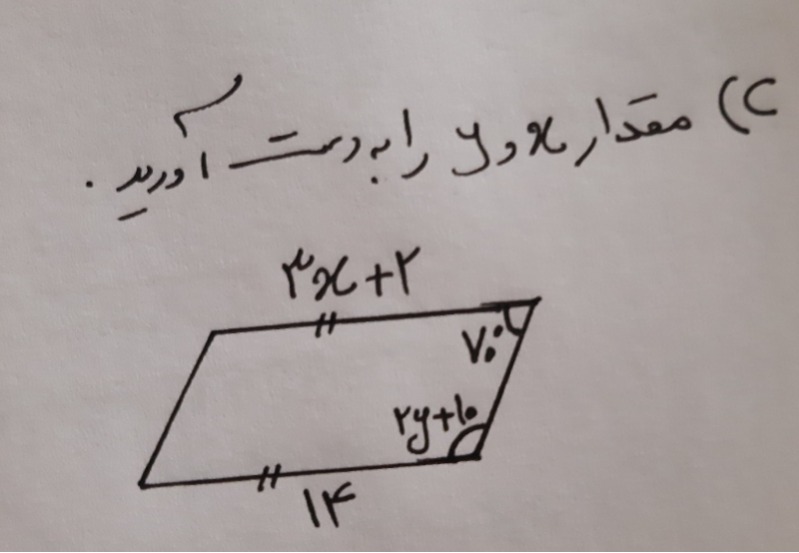 C) مقدار x و y را به دست آورید.
۳x+۲
۷۰°
۲y+۱۰
۱۴